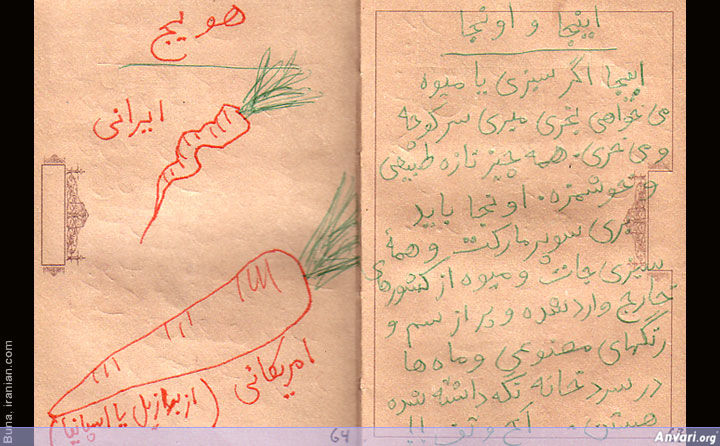 هویج
ایرانی
امریکائی
(از برازیل یا اسپانیا)
64
اینجا و اونجا
اینجا اگر سبزی یا میوه
می خواهی بخری میری سر کوچه
و می خری. همه چیز تازه طبیعی
و خوشمزه. اونجا باید
بری سوپرمارکت و همهٔ
سبزی جات و میوه از کشورهای
خارج وارد شده و پر از سم و
رنگهای مصنوعی و ماه ها
در سردخانه نگه داشته شده
هستن.
Buna. iranian.com
Anvari.org